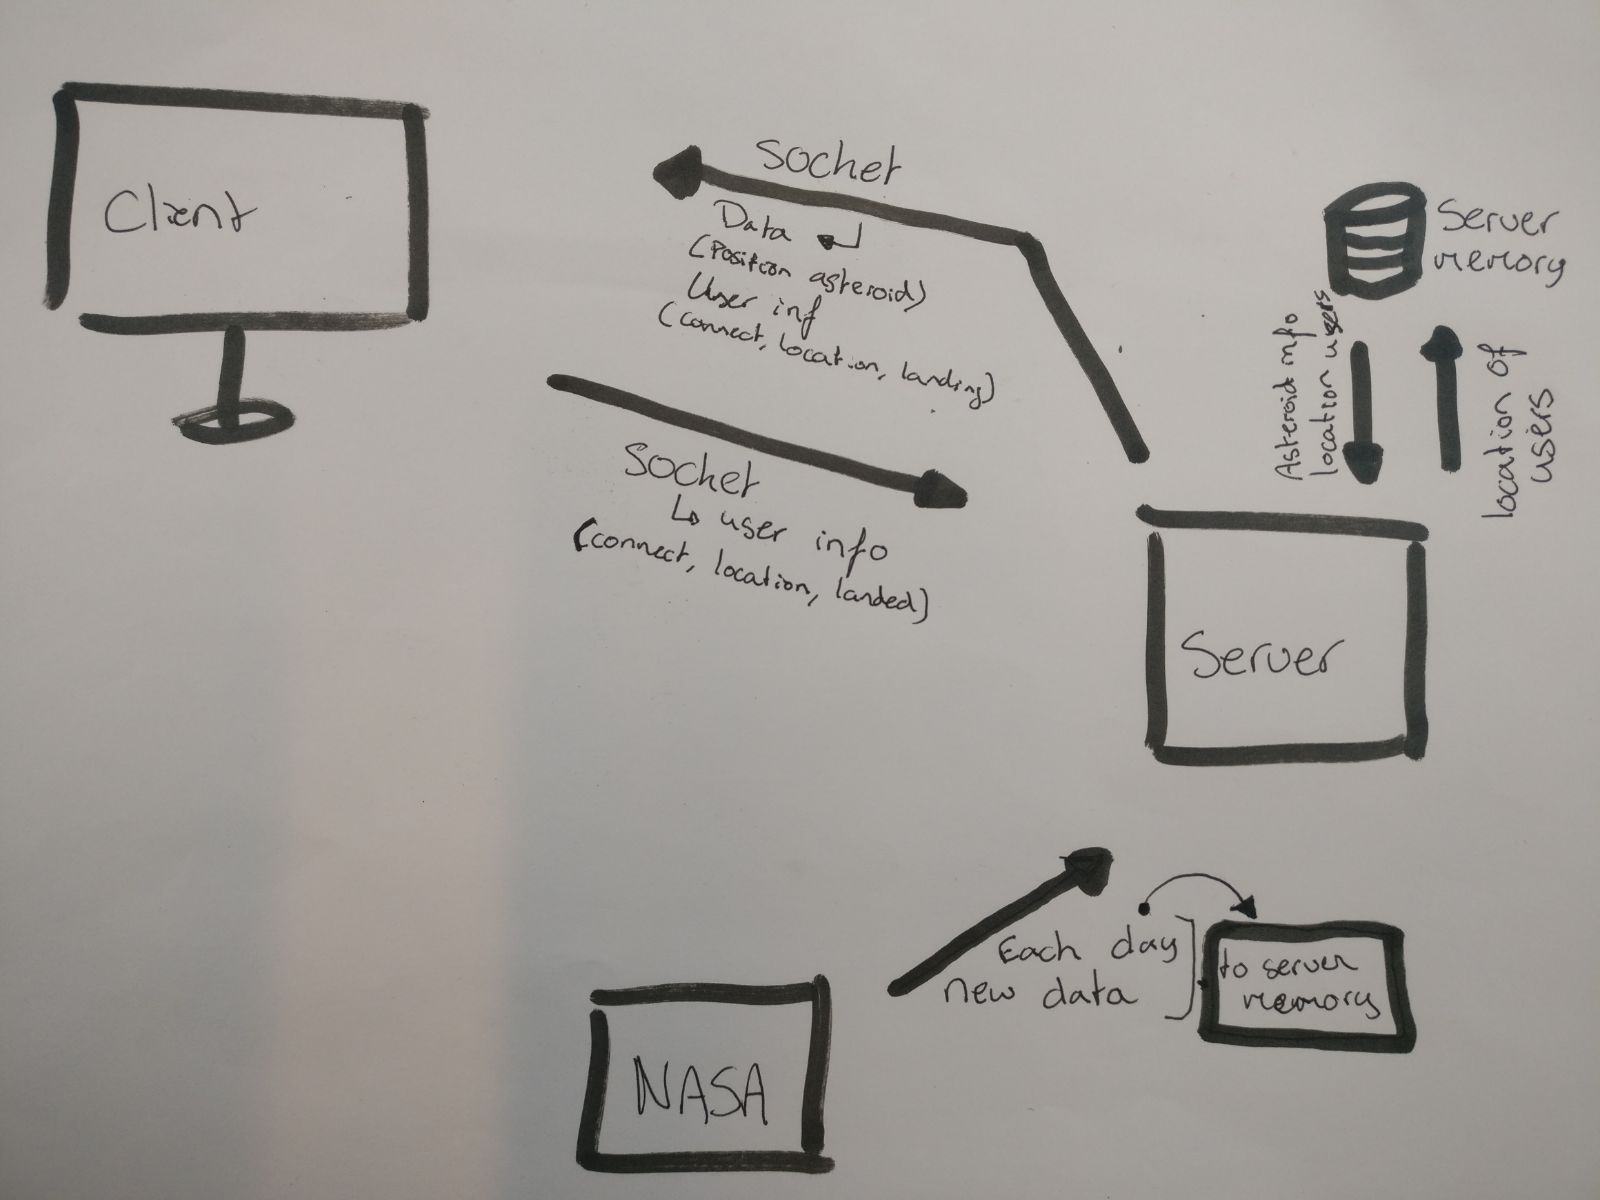 Client
Sochet
Data
(Position asteroid)
User inf
(connect, location, landing)
Sochet
↳ user info
(connect, location, landed)
Server
memory
Asteroid info
location users
location of
users
Server
Each day
new data
to server
memory
NASA